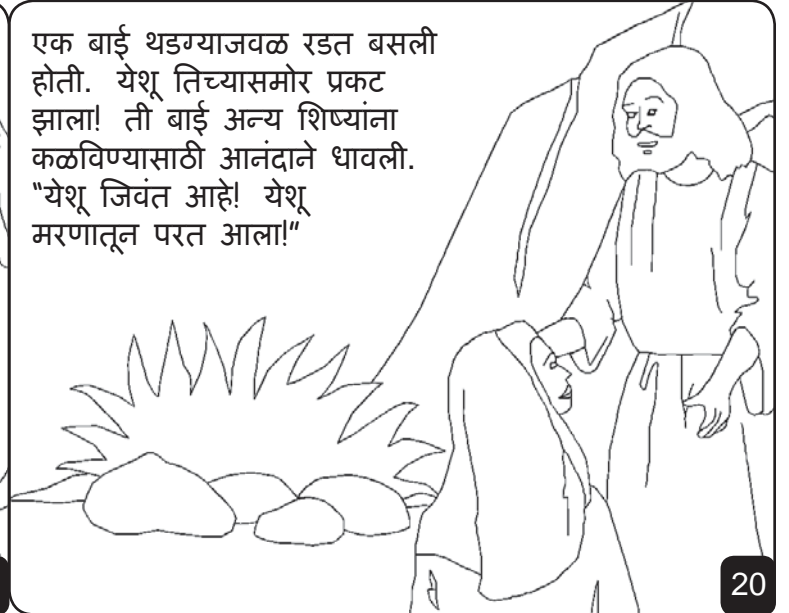 एक बाई थडग्याजवळ रडत बसली
होती. येशू तिच्यासमोर प्रकट
झाला! ती बाई अन्य शिष्यांना
कळविण्यासाठी आनंदाने धावली.
“येशू जिवंत आहे! येशू
मरणातून परत आला!”
20